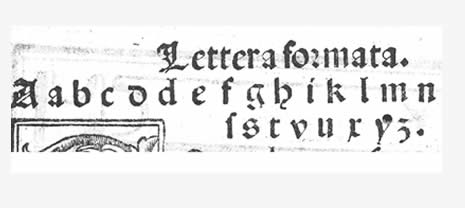 Lettera foꝛmata.
A a b c ꝺ d e f g h i k l m n
ſ s t v u x y ʒ.